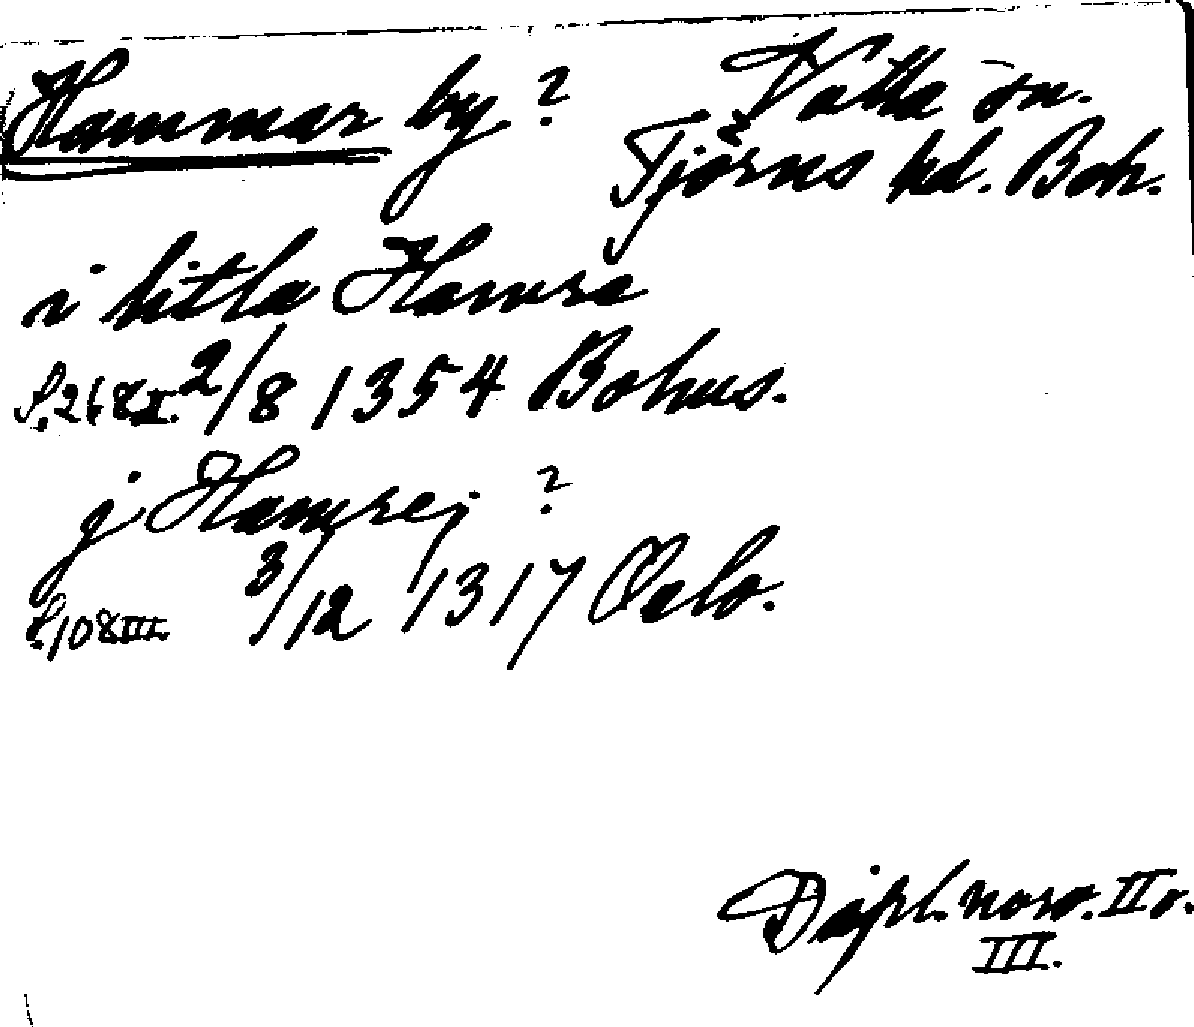 Hammar by? Valla sn.
Tjörns hd. Boh.
i litla Hamra
S. 268 II. 2/8 1354 Bohus.
j Hamrej ?
S. 108 III. 3/12 1317 Oslo.
Dipl. norv. II o.
III.